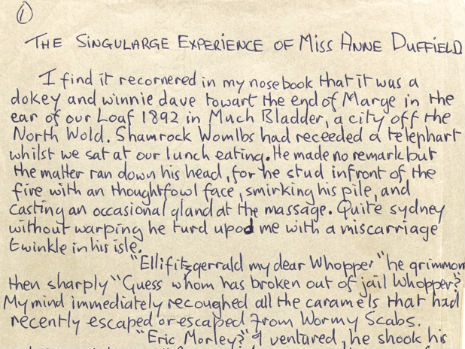 1
THE SINGULARGE EXPERIENCE OF MISS ANNE DUFFIELD
I find it recornered in my nosebook that it was a
dokey and winnie dave towart the end of Marge in the
ear of our Loaf 1892 in Much Bladder, a city off the
North Wold. Shamrock Womlbs had receeded a telephart
whilst we sat at our lunch eating. He made no remark but
the matter ran down his head, for the stud infront of the
fire with an thoughtfowl face, smirking his pile, and
casting an occasional gland at the massage. Quite sydney
without warping he turd upod me with a miscarriage
twinkle in his isle.
"Ellifitzgerrald my dear Whopper" he grimmon
then sharply "Guess whom has broken out of jail Whopper?"
My mind immediately recoughed all the caramels that had
recently escaped or escaped from Wormy Scabs.
"Eric Morley?" I ventured, he shook his